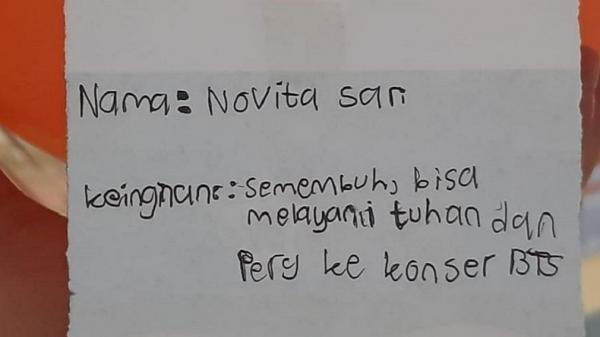 Nama: Novita sari
keingnans: semembuh, bisa
melayani tuhan dan
Pery ke konser BTS